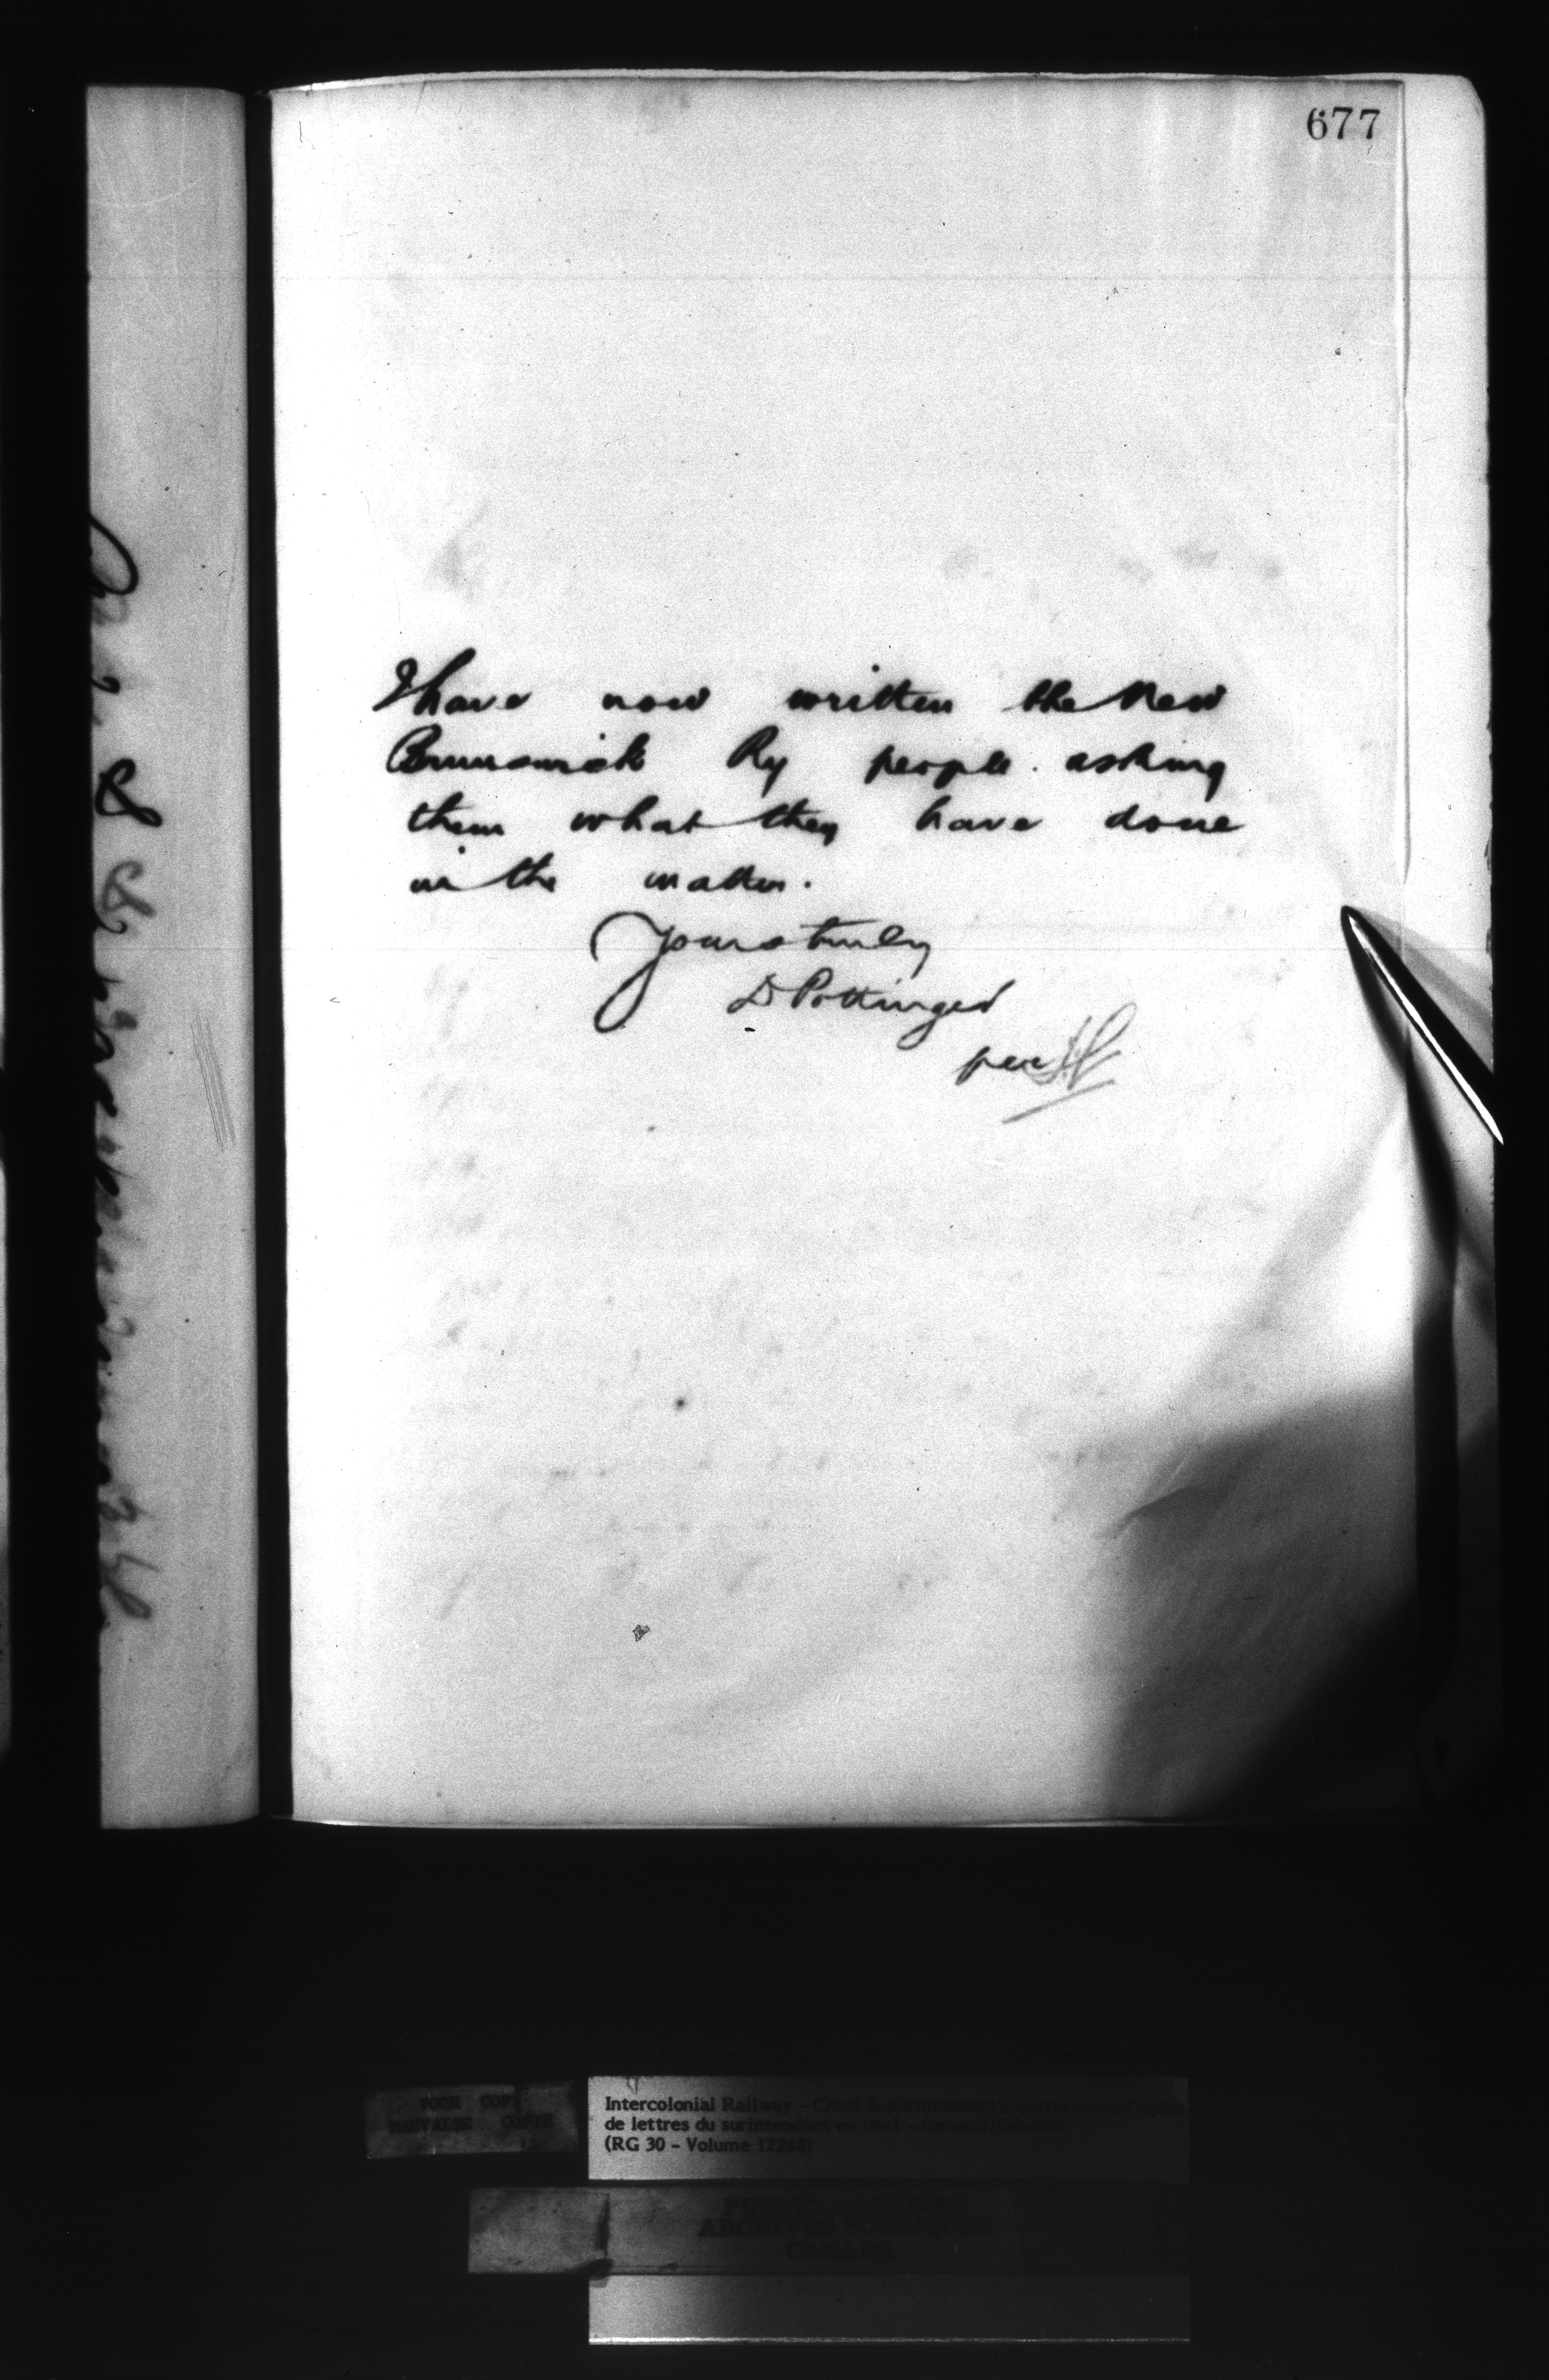 677
I have now written the New
Brunswick Ry people asking
them what they have done
in the matter.
Yours truly
D Pottinger
per
POOR COPY
MAUVAISE COPIE
Intercolonial Railway - Chief Superintendent's Letterbooks/Copies
de lettres du surintendant en chef - General/Général
(RG 30 - Volume 12268)
PUBLIC ARCHIVES
ARCHIVES PUBLIQUES
CANADA